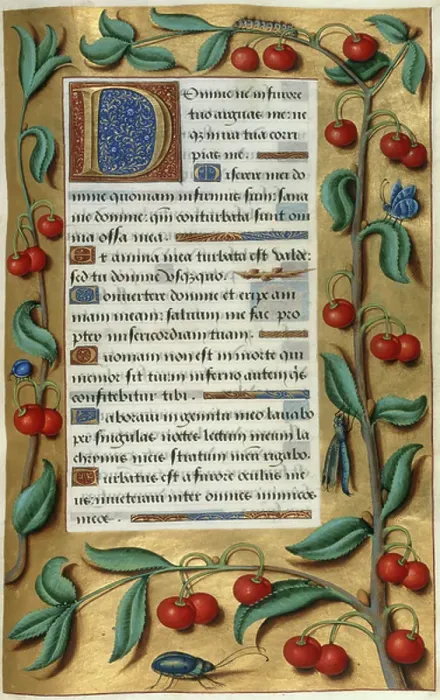 Domine ne in furore
tuo arguas me: ne
q3 in ira tua corri
pias me.
Miserere mei do
mine quoniam infirmus sum: sana
me domine: qm conturbata sunt om
nia ossa mea.
Et anima mea turbata est valde:
sed tu domine vsq3quo.
Conuertere domine et eripe ani
mam meam: saluum me fac pro
pter misericordiam tuam.
Quoniam non est in morte qui
memor sit tui: in inferno autem q's
confitebitur tibi.
Laboraui in gemitu meo lauabo
per singulas noctes lectum meum la
chrymis meis stratum meu rigabo.
Turbatus est a furore oculus me
us: inueteraui inter omnes inimicos
meos.